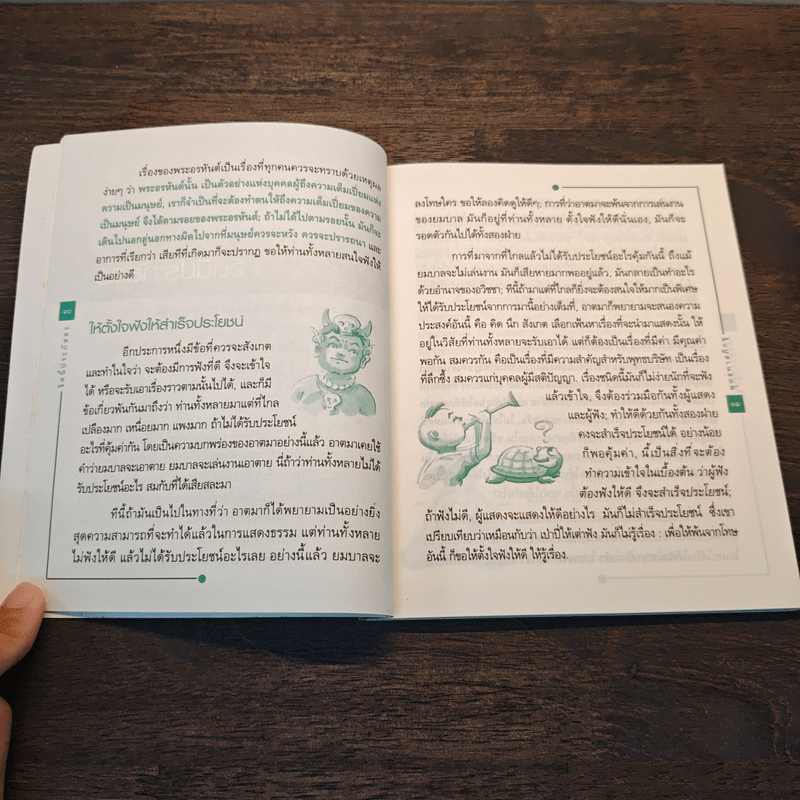 เรื่องของพระอรหันต์เป็นเรื่องที่ทุกคนควรจะทราบด้วยเหตุผล
ง่ายๆ ว่า พระอรหันต์นั้น เป็นตัวอย่างแห่งบุคคลผู้ถึงความเต็มเปี่ยมแห่ง
ความเป็นมนุษย์, เราก็จำเป็นที่จะต้องทำตนให้ถึงความเต็มเปี่ยมของความ
เป็นมนุษย์ จึงได้ตามรอยของพระอรหันต์; ถ้าไม่ได้ไปตามรอยนั้น มันก็จะ
เดินไปนอกลู่นอกทางผิดไปจากที่มนุษย์ควรจะหวัง ควรจะปรารถนา และ
อาการที่เรียกว่า เสียทีที่เกิดมาก็จะปรากฏ ขอให้ท่านทั้งหลายสนใจฟังให้
เป็นอย่างดี
๑๐
ให้ตั้งใจฟังให้สำเร็จประโยชน์
อีกประการหนึ่งมีข้อที่ควรจะสังเกต
และทำในใจว่า จะต้องมีการฟังที่ดี จึงจะเข้าใจ
ได้ หรือจะรับเอาเรื่องราวตามนั้นไปได้, และก็มี
ข้อเกี่ยวพันกันมาถึงว่า ท่านทั้งหลายมาแต่ที่ไกล
เปลืองมาก เหนื่อยมาก แพงมาก ถ้าไม่ได้รับประโยชน์
อะไรที่คุ้มค่ากัน โดยเป็นความบกพร่องของอาตมาอย่างนี้แล้ว อาตมาเคยใช้
คำว่ายมบาลจะเอาตาย ยมบาลจะเล่นงานเอาตาย นี่ถ้าว่าท่านทั้งหลายไม่ได้
รับประโยชน์อะไร สมกับที่ได้เสียสละมา
ทีนี้ถ้ามันเป็นไปในทางที่ว่า อาตมาก็ได้พยายามเป็นอย่างยิ่ง
สุดความสามารถที่จะทำได้แล้วในการแสดงธรรม แต่ท่านทั้งหลาย
ไม่ฟังให้ดี แล้วไม่ได้รับประโยชน์อะไรเลย อย่างนี้แล้ว ยมบาลจะ
ลงโทษใคร ขอให้ลองคิดดูให้ดีๆ; การที่ว่าอาตมาจะพ้นจากการเล่นงาน
ของยมบาล มันก็อยู่ที่ท่านทั้งหลาย ตั้งใจฟังให้ดีนั่นเอง, มันก็จะ
รอดตัวกันไปได้ทั้งสองฝ่าย
การที่มาจากที่ไกลแล้วไม่ได้รับประโยชน์อะไรคุ้มกันนี้, ถึงแม้
ยมบาลจะไม่เล่นงาน มันก็เสียหายมากพออยู่แล้ว, มันกลายเป็นทำอะไร
ด้วยอำนาจของอวิชชา; ทีนี้ถ้ามาแต่ที่ไกลก็ยิ่งจะต้องสนใจให้มากเป็นพิเศษ
ให้ได้รับประโยชน์จากการมานี้อย่างเต็มที่, อาตมาก็พยายามจะสนองความ
ประสงค์อันนี้ คือ คิด นึก สังเกต เลือกเฟ้นหาเรื่องที่จะนำมาแสดงนั้น ให้
อยู่ในวิสัยที่ท่านทั้งหลายจะรับเอาได้ แต่ก็ต้องเป็นเรื่องที่มีค่า มีคุณค่า
พอกัน สมควรกัน คือเป็นเรื่องที่มีความสำคัญสำหรับพุทธบริษัท เป็นเรื่อง
ที่ลึกซึ้ง สมควรแก่บุคคลผู้มีสติปัญญา. เรื่องชนิดนี้มันก็ไม่ง่ายนักที่จะฟัง
แล้วเข้าใจ, จึงต้องร่วมมือกันทั้งผู้แสดง
และผู้ฟัง; ทำให้ดีด้วยกันทั้งสองฝ่าย
คงจะสำเร็จประโยชน์ได้ อย่างน้อย
ก็พอคุ้มค่า, นี้เป็นสิ่งที่จะต้อง
ทำความเข้าใจในเบื้องต้น ว่าผู้ฟัง
ต้องฟังให้ดี จึงจะสำเร็จประโยชน์;
ถ้าฟังไม่ดี, ผู้แสดงจะแสดงให้ดีอย่างไร มันก็ไม่สำเร็จประโยชน์ ซึ่งเขา
เปรียบเทียบว่าเหมือนกับว่า เป่าปี่ให้เต่าฟัง มันก็ไม่รู้เรื่อง : เพื่อให้พ้นจากโทษ
อันนี้ ก็ขอให้ตั้งใจฟังให้ดี ให้รู้เรื่อง.